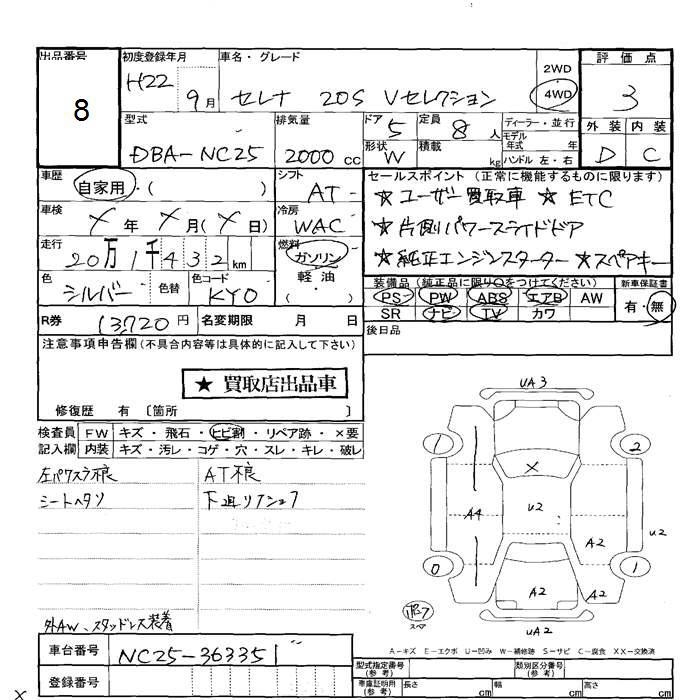 出品番号
8
初度登録年月
H22
9月
車名・グレード
セレナ 20S Vセレクション
2WD
4WD
評価点
3
外装 内装
D C
型式
DBA-NC25
排気量
2000cc
ドア
5
定員
8人
形状
W
積載
kg
ディーラー・並行
モデル年式 年
ハンドル 左・右
車歴
自家用・( )
シフト
AT-
車検
年 月( 日)
冷房
WAC
走行
20万1千432km
燃料
ガソリン
軽油
・( )
色
シルバー
色替
色コード
KY0
セールスポイント(正常に機能するものに限ります)
☆ユーザー買取車 ☆ETC
☆片側パワースライドドア
☆純正エンジンスターター ☆スペアキー
装備品(純正品に限り○をつけてください)
新車保証書
PS PW ABS エアB AW
SR ナビ TV カワ
有・無
後日品
R券
13,720円
名変期限 月 日
注意事項申告欄(不具合内容等は具体的に記入して下さい)
★ 買取店出品車
修復歴 有 〔箇所 〕
検査員記入欄
FW キズ・飛石・ヒビ割・リペア跡・×要
内装 キズ・汚レ・コゲ・穴・スレ・キレ・破レ
左パワスラ不良
シートヘタリ
AT不良
外AW、スタッドレス装着
UA3
1
2
X
A4
U2
A2
U2
0
1
A2
A2
UA2
スペア
A-キズ E-エクボ U-凹み W-補修跡 S-サビ C-腐食 XX-交換済
車台番号
NC25-363351
登録番号
型式指定番号(参考)
類別区分番号(参考)
車庫証明用(参考)
長さ cm
幅 cm
高さ cm
X